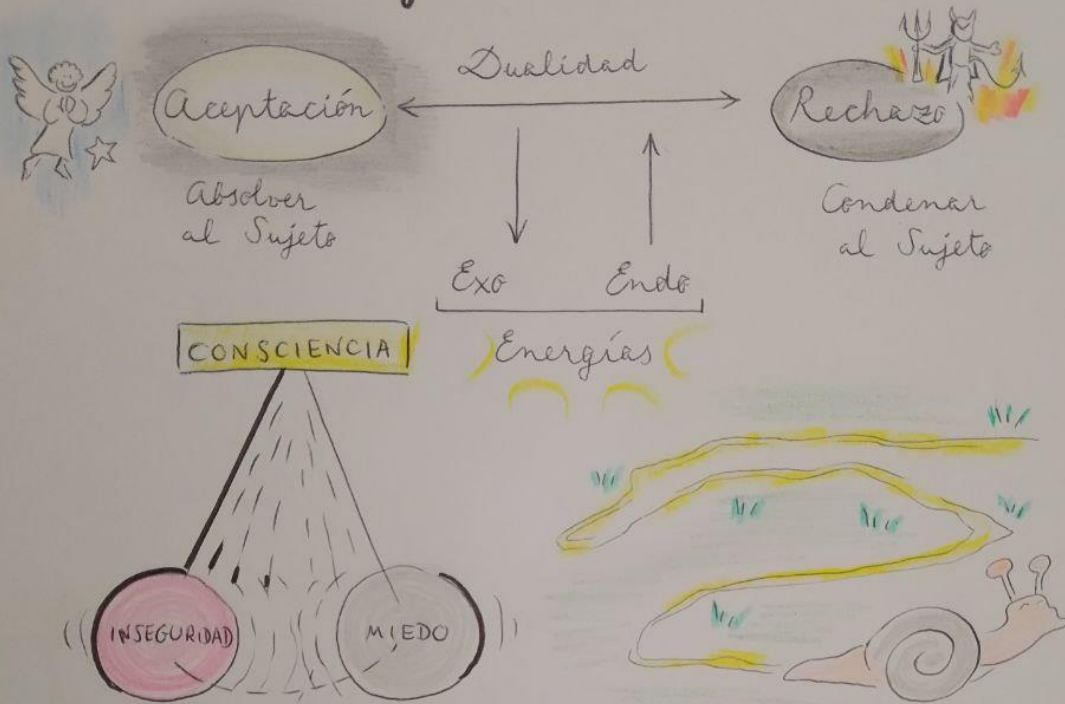 Dualidad
Aceptación
Rechazo
Absolver
al Sujeto
Condenar
al Sujeto
Exo
Endo
Energías
CONSCIENCIA
INSEGURIDAD
MIEDO